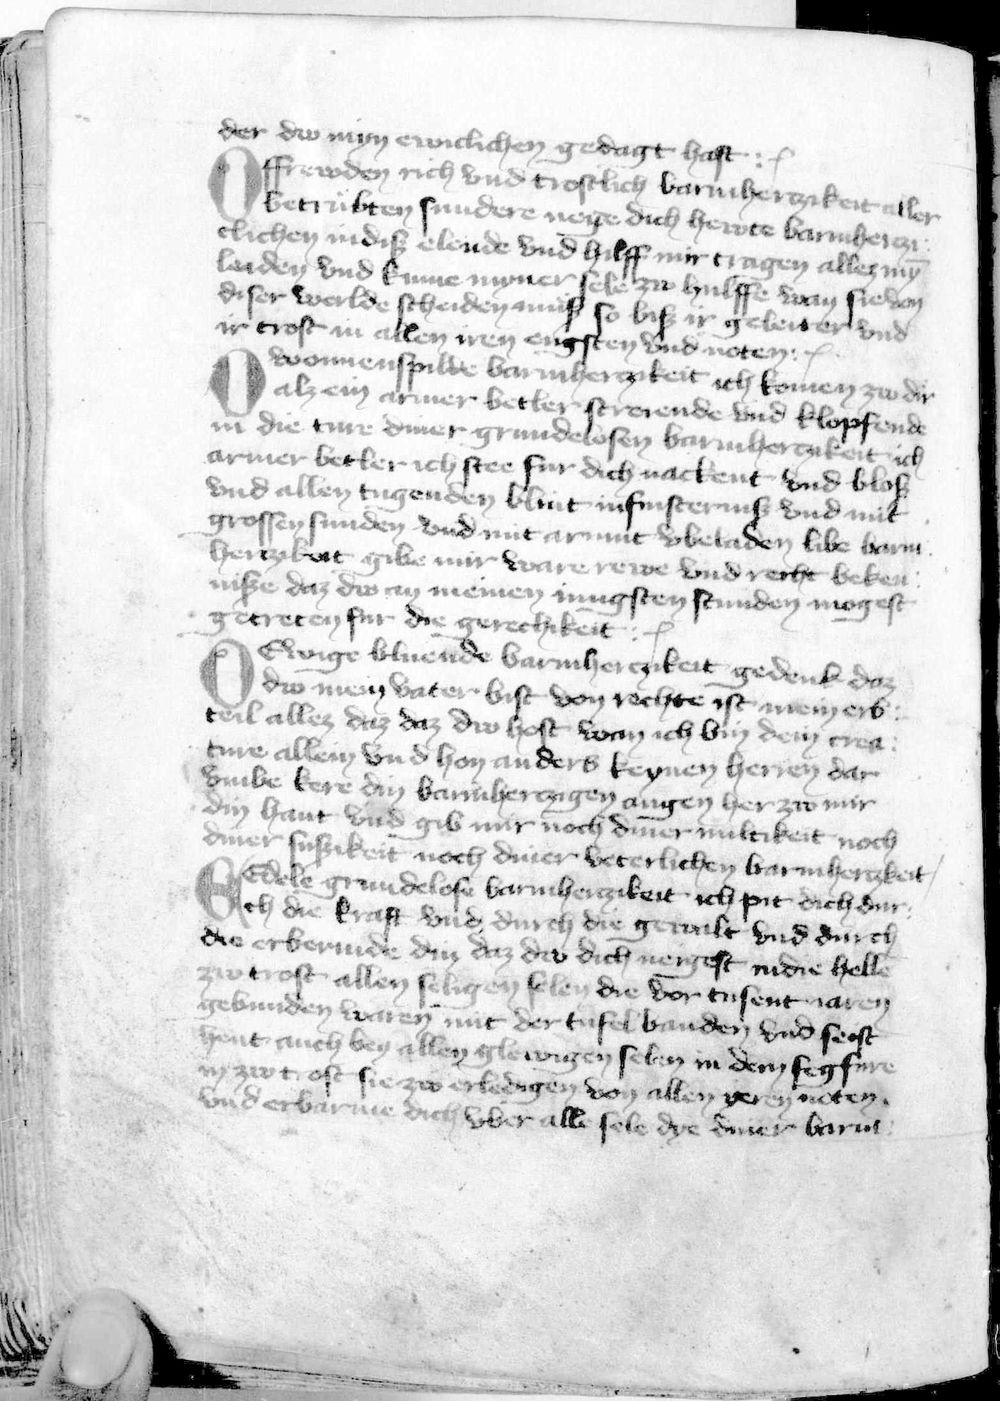 der dw myn ewiclichen gedagt hast :
O ffrewden rich vnd trostlich barmherczikeit aller
betrübten sundere neyge dich hewte barmherczi:
clichen in diß elende vnd hilff mir tragen allez myn
leiden vnd kume myner sele zw hulffe wan sie von
diser werlde scheiden muß so biß ir geleiter vnd
ir trost in allen iren engsten vnd noten :
O wonnenspilde barmherczikeit ich komen zw dir
alz ein armer betler screiende vnd klopfende
in die ture diner grundelosen barmherczikeit ich
armer betler ich stee fur dich nackent vnd bloß
vnd allen tugenden blint in finsterniß vnd mit
grossen sunden vnd mit armut vbeladen libe barm:
herczikeit gibe mir ware rewe vnd recht beken:
niße daz dw an meinen iungsten stunden mogest
getreten fur die gerechikeit :
O Ewige bluende barmherczikeit gedenk daz
dw mein vater bist von rechte ist mein erb:
teil allez daz daz dw host wan ich bin dein crea:
ture allein vnd hon anders keynen herren dar
vmbe kere din barmherczigen augen her zw mir
din hant vnd gib mir noch diner miltikeit noch
diner sußikeit noch diner veterlichen barmherczkeit
E Edele grundelose barmherczikeit ich pit dich dur:
ch die kraft vnd durch die gewalt vnd durch
die erbermde din daz dw dich neigest in die helle
zw trost allen seligen selen die vor tusent iaren
gebunden waren mit der tufel banden vnd seost
hewt auch bey allen glewigen selen in dem fegfure
in zw trost sie zw erledigen von allen yeren noten.
vnd erbarme dich vber alle sele dye diner barm: